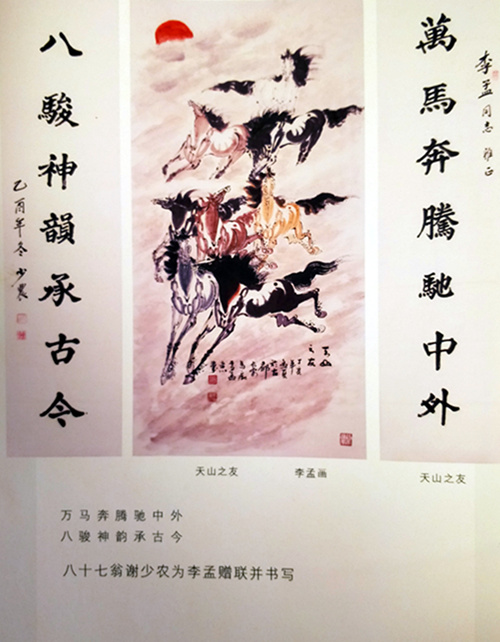 萬馬奔騰馳中外
李孟同志雅正
八駿神韻承古今
乙酉年冬少農
天山之友
天山之友
李孟画
天山之友
万马奔腾驰中外
八骏神韵承古今
八十七翁谢少农为李孟赠联并书写